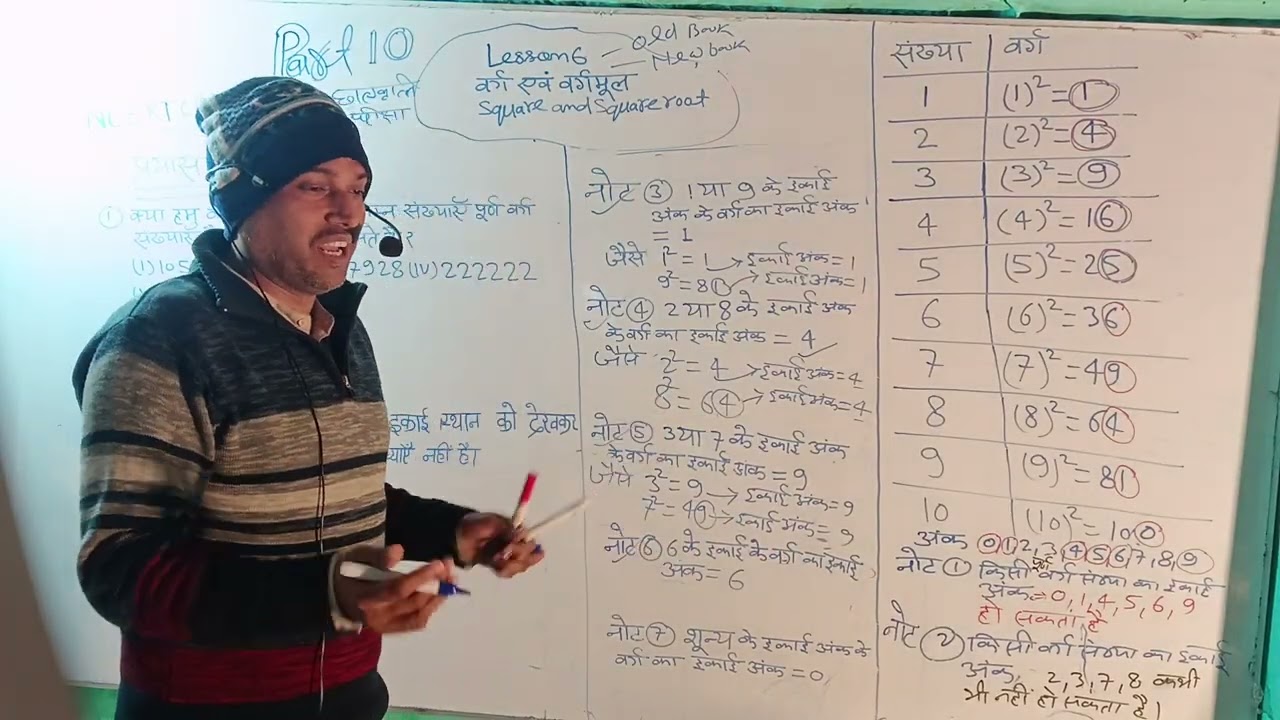 Part 10
Lesson 6 - Old Book
- New book
वर्ग एवं वर्गमूल
Square and Square root
① क्या हम
संख्याएँ पूर्ण वर्ग
(1)105
7928 (IV) 222222
इकाई स्थान को देखकर
नहीं है।
नोट ③ 1 या 9 के इकाई
अंक के वर्ग का इकाई अंक
= 1
जैसे 1² = 1 → इकाई अंक = 1
9² = 81 → इकाई अंक = 1
नोट ④ 2 या 8 के इकाई अंक
के वर्ग का इकाई अंक = 4
जैसे 2² = 4 → इकाई अंक = 4
8² = 64 → इकाई अंक = 4
नोट ⑤ 3 या 7 के इकाई अंक
के वर्ग का इकाई अंक = 9
जैसे 3² = 9 → इकाई अंक = 9
7² = 49 → इकाई अंक = 9
नोट ⑥ 6 के इकाई के वर्ग का इकाई
अंक = 6
नोट ⑦ शून्य के इकाई अंक के
वर्ग का इकाई अंक = 0
संख्या वर्ग
1 (1)² = 1
2 (2)² = 4
3 (3)² = 9
4 (4)² = 16
5 (5)² = 25
6 (6)² = 36
7 (7)² = 49
8 (8)² = 64
9 (9)² = 81
10 (10)² = 100
अंक 0, 1, 2, 3, 4, 5, 6, 7, 8, 9
नोट ① किसी पूर्ण वर्ग संख्या का इकाई
अंक = 0, 1, 4, 5, 6, 9
हो सकता है
नोट ② किसी वर्ग संख्या का इकाई
अंक, 2, 3, 7, 8 कभी
भी नहीं हो सकता है।